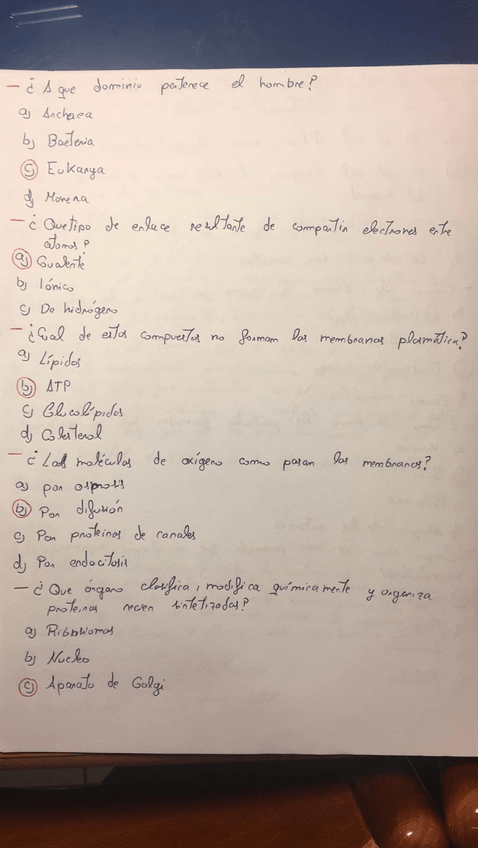 — ¿ A que dominio pertenece el hombre?
a) Archaea
b) Bacteria
c) Eukarya
d) Morena
— ¿ Que tipo de enlace resultante de compartir electrones entre
átomos?
a) Covalente
b) Iónico
c) De hidrógeno
— ¿Cual de estos compuestos no forman las membranas plasmática?
a) Lípidos
b) ATP
c) Glucolípidos
d) Colesterol
— ¿ Las moléculas de oxígeno como pasan las membranas?
a) por osmosis
b) Por difusión
c) Por proteinas de canales
d) Por endocitosis
— ¿ Que órgano clasifica, modifica químicamente y organiza
proteinas recien sintetizadas?
a) Ribosomas
b) Nucleo
c) Aparato de Golgi